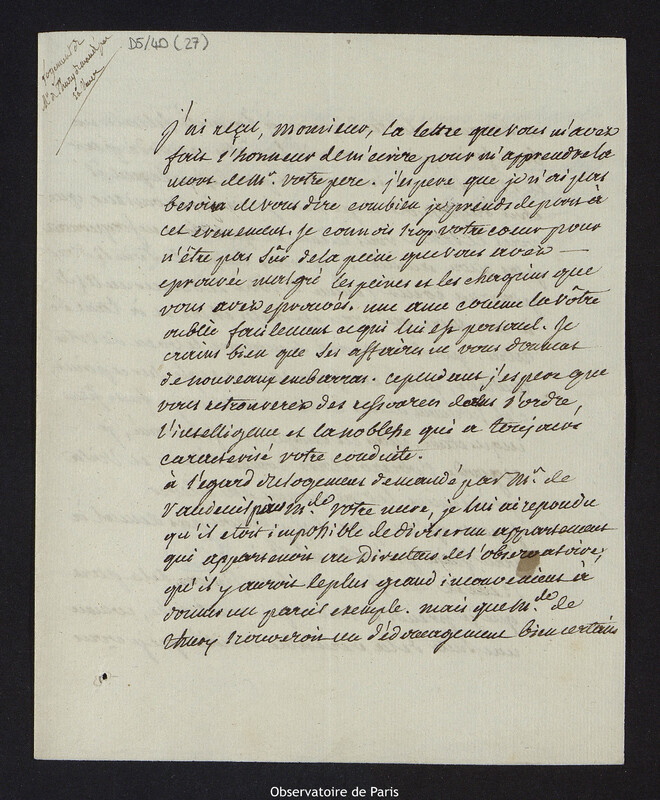 D5/40 (27)
logement de
Mr de Thury
j'ai reçu, Monsieur, la lettre que vous m'avez
fait l'honneur de m'ecrire pour m'apprendre la
mort de Mr. votre pere. j'espere que je n'ai pas
besoin de vous dire combien je prends de part à
cet evenement. je connois trop votre cœur pour
n'être pas sûr de la peine que vous avez —
eprouvée malgré les peines et les chagrins que
vous avez eprouvés. une ame comme la vôtre
oublie facilement ce qui lui est personel. Je
crains bien que ses affaires ne vous donnent
de nouveaux embarras. cependant j'espere que
vous retrouverez des ressources dans l'ordre,
l'intelligence et la noblesse qui a toujours
caracterisé votre conduite.
à l'egard du logement demandé par Mr. de
Vaudeuil pour Mde votre mere, je lui ai repondu
qu'il etoit impossible de diviser un appartement
qui appartenoit au Directeur de l'observatoire,
qu'il y auroit le plus grand inconvenient à
donner un pareil exemple. mais que Mde de
Thury trouveroit un dédomagement bien certain
Observatoire de Paris